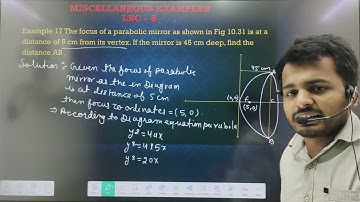 MISCELLANEOUS EXAMPLES
LEC - 8
Example 17 The focus of a parabolic mirror as shown in Fig 10.31 is at a
distance of 5 cm from its vertex. If the mirror is 45 cm deep, find the
distance AB
Solution:- Given the focus of parabolic
mirror as the in Diagram
is at distance of 5 cm
then focus co-ordinates = (5,0).
⇒ According to Diagram equation parabola
y²=4ax
y²=4×5×
y²=20x
45 cm
A
(0,0)
F
(5,0)
C
B